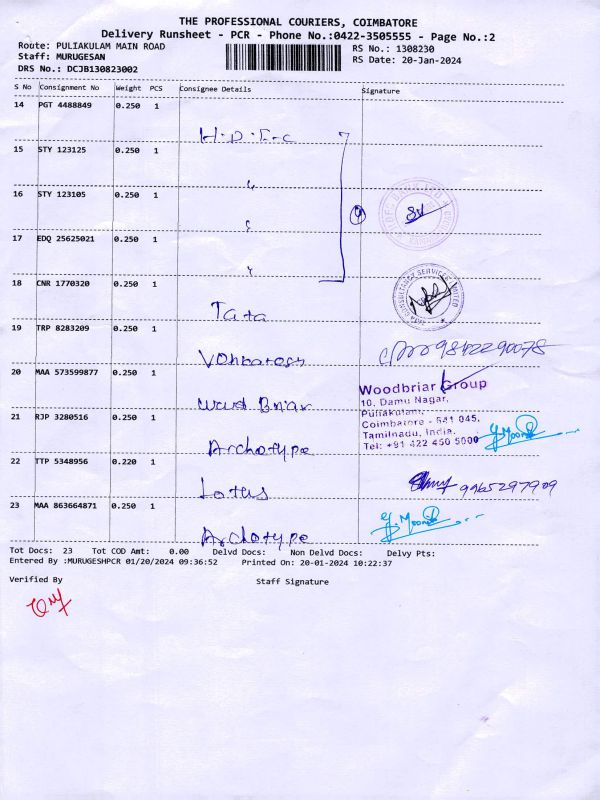 THE PROFESSIONAL COURIERS, COIMBATORE
Delivery Runsheet - PCR - Phone No.:0422-3505555 - Page No.:2
Route: PULIAKULAM MAIN ROAD
RS No.: 1308230
Staff: MURUGESAN
RS Date: 20-Jan-2024
DRS No.: DCJB130823002
S No Consignment No Weight PCS Consignee Details Signature
14 PGT 4488849 0.250 1
H.D.F.C
15 STY 123125 0.250 1
16 STY 123105 0.250 1
17 EDQ 25625021 0.250 1
18 CNR 1770320 0.250 1
Tata
19 TRP 8283209 0.250 1
9842290078
20 MAA 573599877 0.250 1
Woodbriar Group
10, Damu Nagar,
Puliakulam,
Coimbatore - 641 045.
Tamilnadu, India.
Tel: +91 422 450 5000
21 RJP 3280516 0.250 1
Archotype
22 TTP 5348956 0.220 1
Lotus
9965297909
23 MAA 863664871 0.250 1
Archotype
Tot Docs: 23 Tot COD Amt: 0.00 Delvd Docs: Non Delvd Docs: Delvy Pts:
Entered By :MURUGESHPCR 01/20/2024 09:36:52 Printed On: 20-01-2024 10:22:37
Verified By Staff Signature